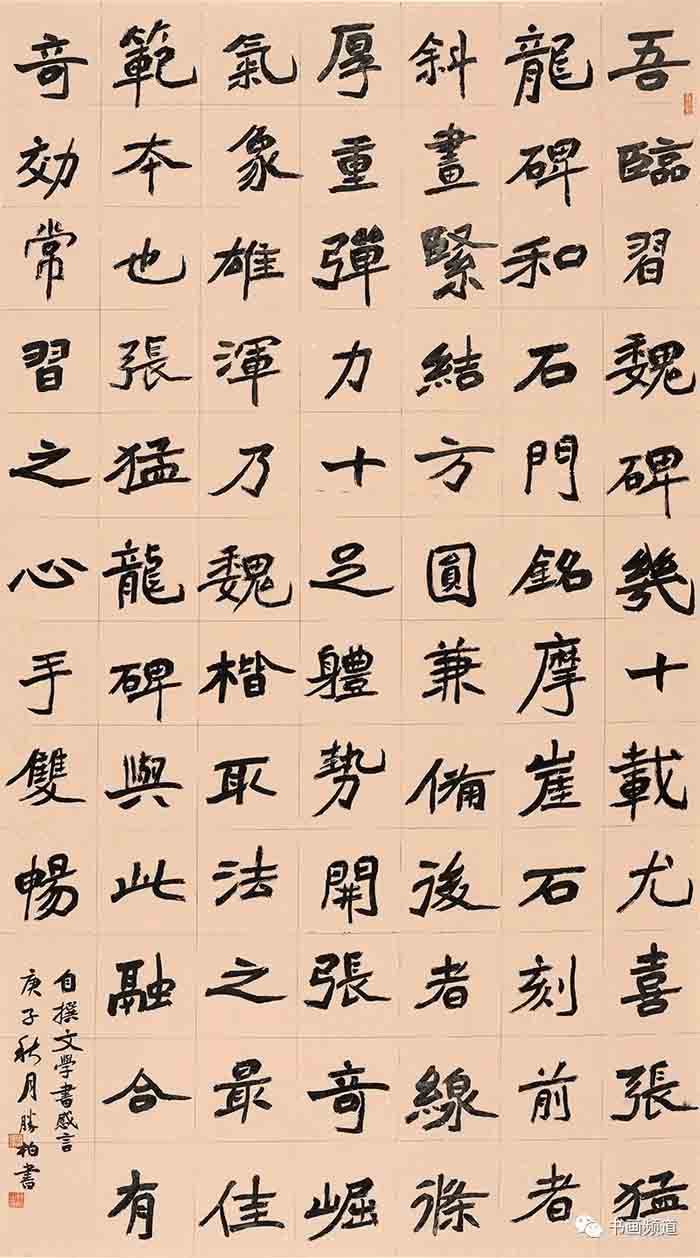 吾臨習魏碑幾十載尤喜張猛
龍碑和石門銘摩崖石刻前者
斜畫緊結方圓兼備後者線條
厚重彈力十足體勢開張奇崛
氣象雄渾乃魏楷取法之最佳
範本也張猛龍碑與此融合有
奇効常習之心手雙暢
自撰文學書感言
庚子秋月勝柏書
书画频道